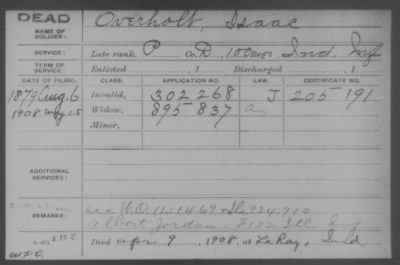 DEAD
NAME OF SOLDIER: Overholt, Isaac
SERVICE: Late rank, P Co. D, 100 Reg't Ind. Inf
TERM OF SERVICE: Enlisted , 1 Discharged , 1
DATE OF FILING. CLASS. APPLICATION NO. LAW. CERTIFICATE NO.
1879 Aug. 6 Invalid, 302 268 J 205 191
1908 May 25 Widow, 895 837
Minor,
ADDITIONAL SERVICES:
REMARKS: W.O 1131469 924.710
Albert Jordan F 132 Ill. Inf
Died Apr 9, 1908, at LaRay, Ind